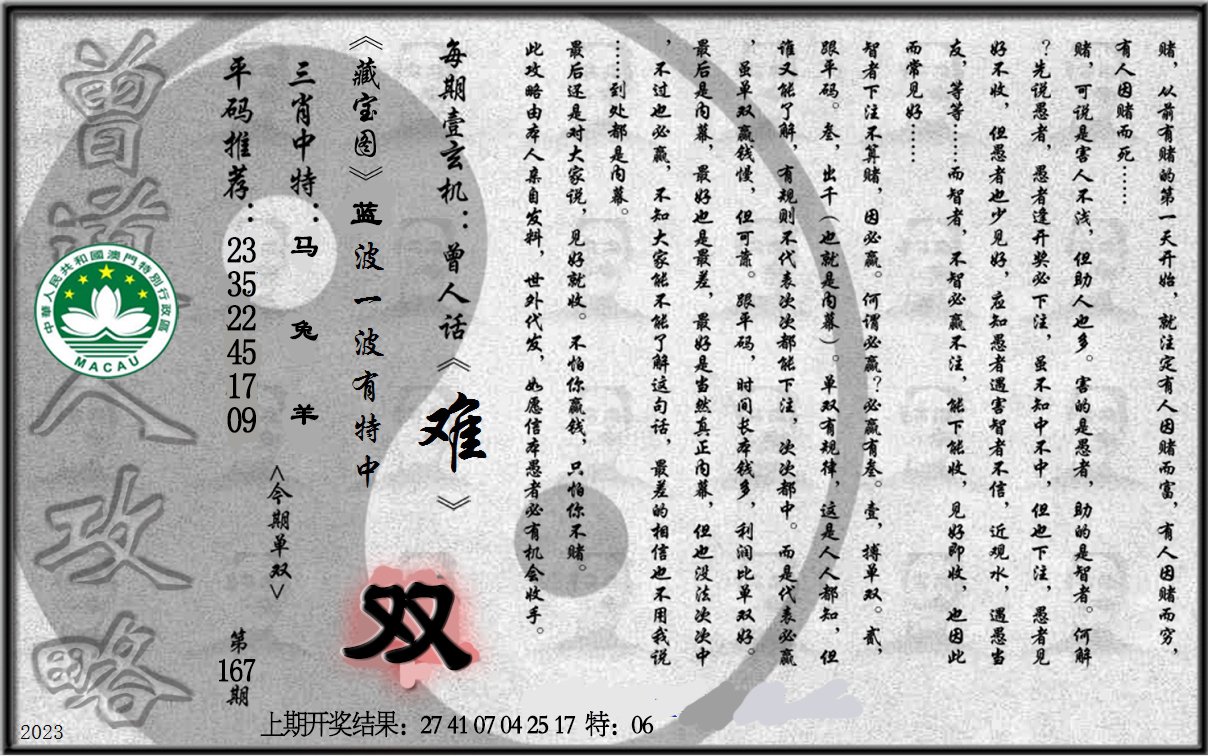 赌，从前有赌的第一天开始，就注定有人因赌而富，有人因赌而穷，
有人因赌而死……
赌，可说是害人不浅，但助人也多。害的是愚者，助的是智者。何解
？先说愚者，愚者逢开奖必下注，虽不知中不中，但也下注，愚者见
好不收，但愚者也少见好，应知愚者遇害智者不信，近观水，遇愚当
友，等等……而智者，不智必赢不注，能下能收，见好即收，也因此
而常见好……
智者下注不算赌，因必赢。何谓必赢？必赢有叁。壹，搏单双。贰，
跟平码。叁，出千（也就是内幕）。单双有规律，这是人人都知，但
谁又能了解，有规则不代表次次都能下注，次次都中。而是代表必赢
，虽单双赢钱慢，但可靠。跟平码，时间长本钱多，利润比单双好。
最后是内幕，最好也是最差，最好是当然真正内幕，但也没法次次中
，不过也必赢，不知大家能不能了解这句话，最差的相信也不用我说
……到处都是内幕。
最后还是对大家说，见好就收。不怕你赢钱，只怕你不赌。
此攻略由本人亲自发料，世外代发，如愿信本愚者必有机会收手。
每期壹玄机：曾人话《难》
《藏宝图》蓝波一波有特中
双
三肖中特：马 兔 羊
<今期单双>
平码推荐：23 35 22 45 17 09
第167期
曾道人攻略
中華人民共和國澳門特別行政區
MACAU
上期开奖结果：27 41 07 04 25 17 特：06
2023